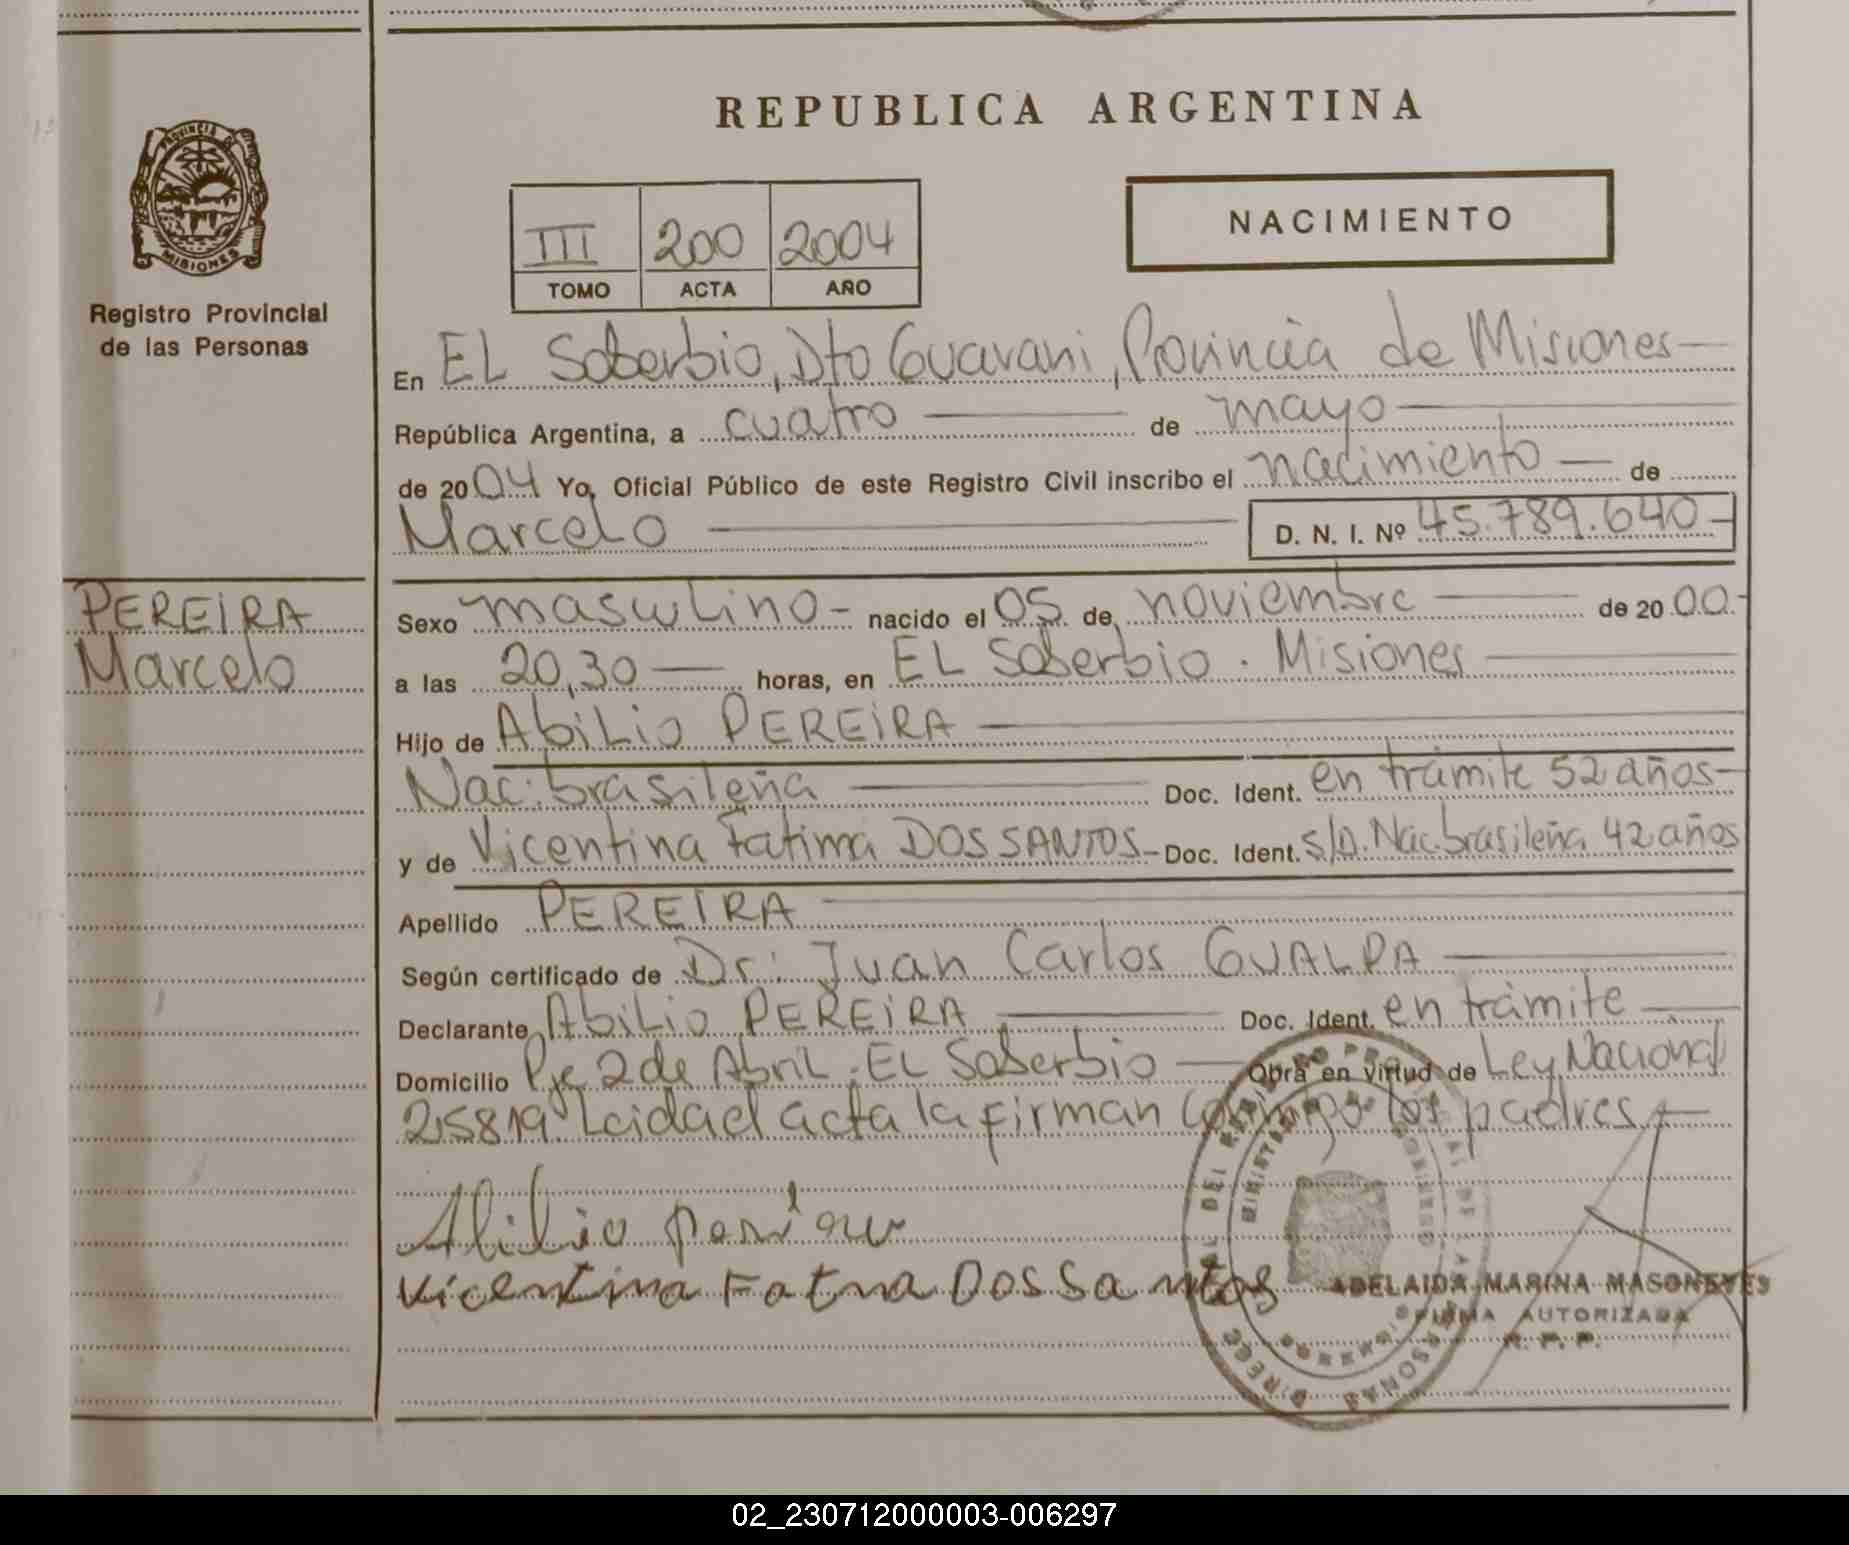 REPUBLICA ARGENTINA
PROVINCIA DE
MISIONES
Registro Provincial
de las Personas
III 200 2004
TOMO ACTA AÑO
NACIMIENTO
En EL Soberbio, Dto Guarani, Provincia de Misiones
República Argentina, a cuatro de mayo
de 2004 Yo, Oficial Público de este Registro Civil inscribo el nacimiento de
Marcelo D. N. I. Nº 45.789.640
PEREIRA
Marcelo
Sexo masculino nacido el 05 de noviembre de 2000
a las 20,30 horas, en EL Soberbio. Misiones
Hijo de Abilio PEREIRA
Nac. brasileña Doc. Ident. en trámite 52 años
y de Vicentina Fatima DOS SANTOS Doc. Ident. S/D. Nac. brasileña 42 años
Apellido PEREIRA
Según certificado de Dr: Juan Carlos GUALPA
Declarante Abilio PEREIRA Doc. Ident. en trámite
Domicilio Pje 2 de Abril. EL Soberbio Obra en virtud de Ley Nacional
25819. Leida el acta la firman conmigo los padres
Abilio
Vicentina Fatma Dos Santos
ADELAIDA MARINA MASONEVES
FIRMA AUTORIZADA
R. P. P.
02_230712000003-006297